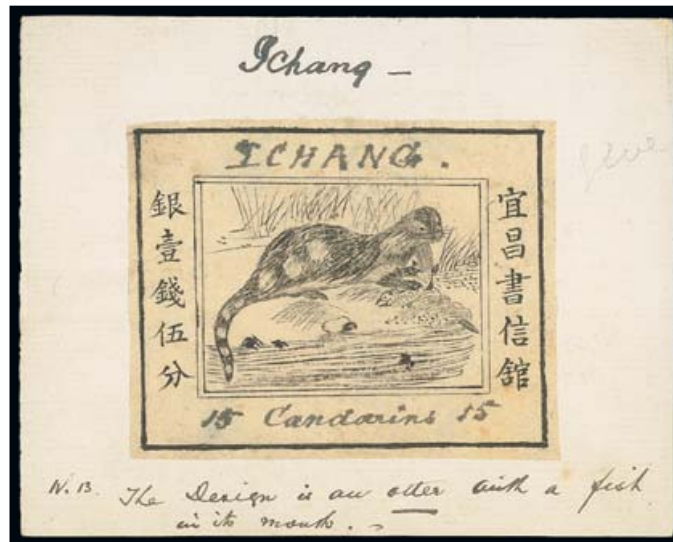 Ichang —
ICHANG.
宜昌書信舘
銀壹錢伍分
15 Candarins 15
N.B. The Design is an otter with a fish
in its mouth. –